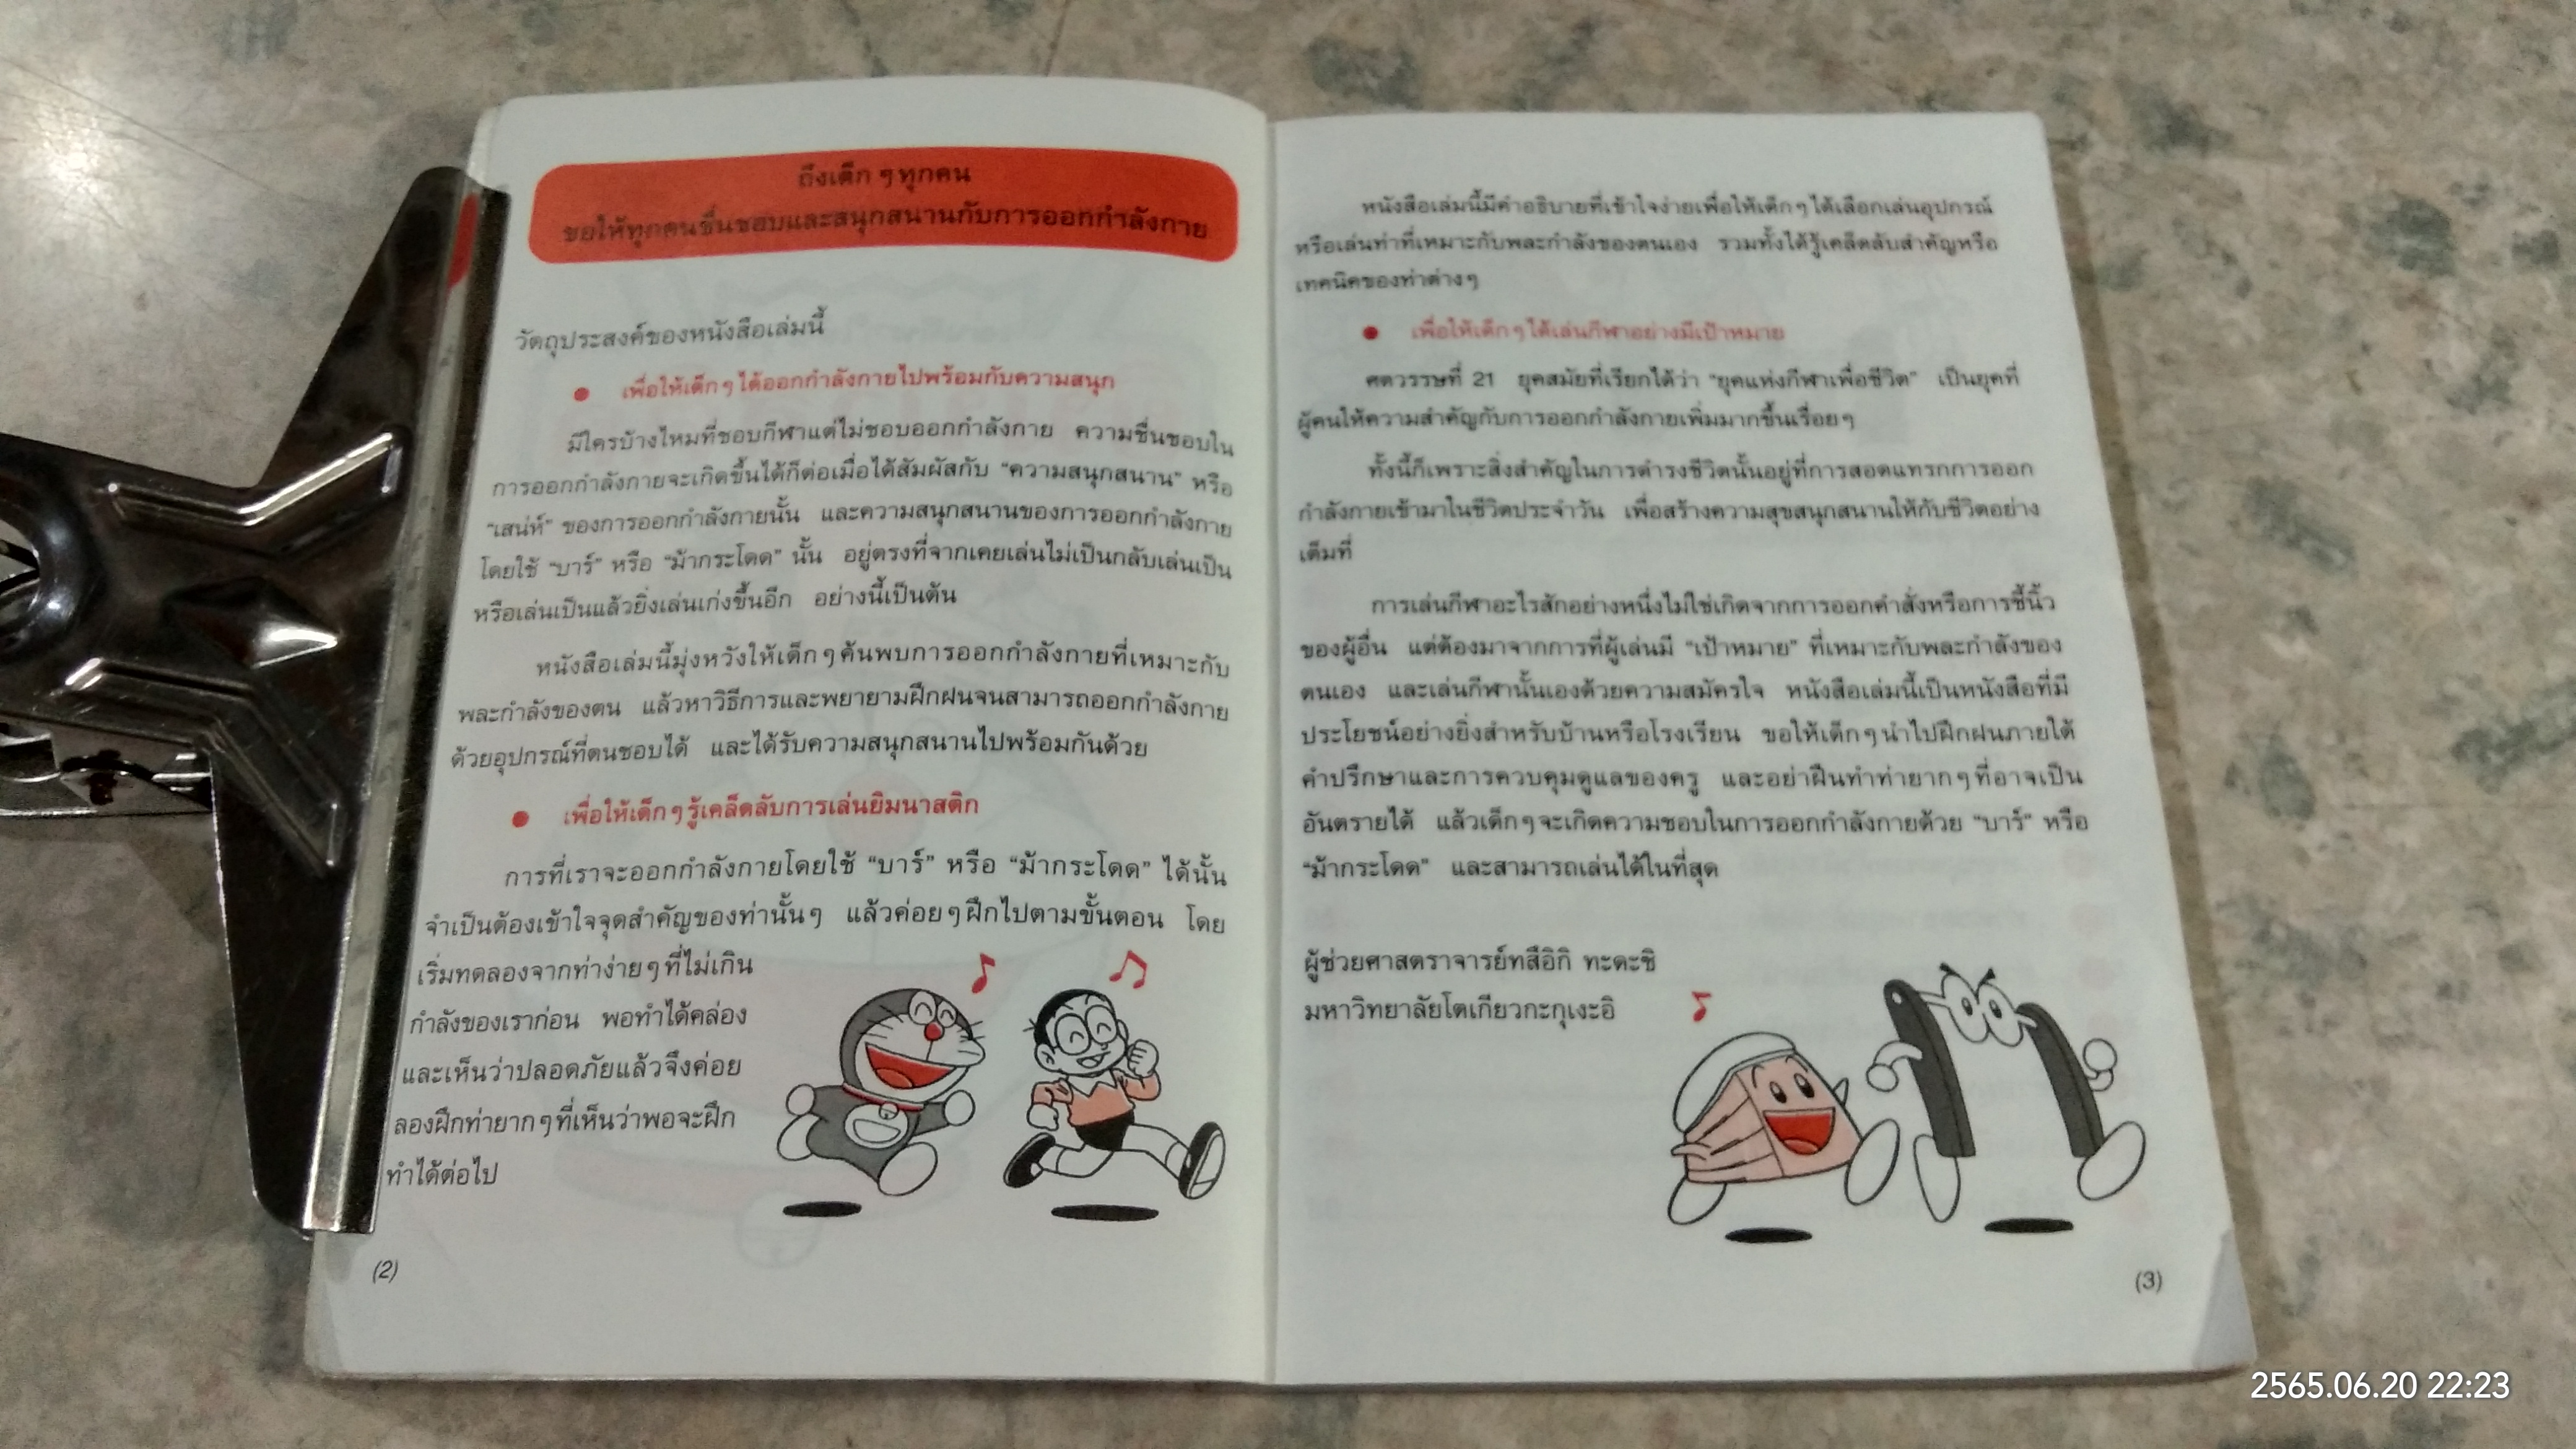 ถึงเด็ก ๆ ทุกคน
ขอให้ทุกคนชื่นชอบและสนุกสนานกับการออกกำลังกาย
วัตถุประสงค์ของหนังสือเล่มนี้
● เพื่อให้เด็ก ๆ ได้ออกกำลังกายไปพร้อมกับความสนุก
มีใครบ้างไหมที่ชอบกีฬาแต่ไม่ชอบออกกำลังกาย ความชื่นชอบใน
การออกกำลังกายจะเกิดขึ้นได้ก็ต่อเมื่อได้สัมผัสกับ “ความสนุกสนาน” หรือ
“เสน่ห์” ของการออกกำลังกายนั้น และความสนุกสนานของการออกกำลังกาย
โดยใช้ “บาร์” หรือ “ม้ากระโดด” นั้น อยู่ตรงที่จากเคยเล่นไม่เป็นกลับเล่นเป็น
หรือเล่นเป็นแล้วยิ่งเล่นเก่งขึ้นอีก อย่างนี้เป็นต้น
หนังสือเล่มนี้มุ่งหวังให้เด็ก ๆ ค้นพบการออกกำลังกายที่เหมาะกับ
พละกำลังของตน แล้วหาวิธีการและพยายามฝึกฝนจนสามารถออกกำลังกาย
ด้วยอุปกรณ์ที่ตนชอบได้ และได้รับความสนุกสนานไปพร้อมกันด้วย
● เพื่อให้เด็ก ๆ รู้เคล็ดลับการเล่นยิมนาสติก
การที่เราจะออกกำลังกายโดยใช้ “บาร์” หรือ “ม้ากระโดด” ได้นั้น
จำเป็นต้องเข้าใจจุดสำคัญของท่านั้น ๆ แล้วค่อย ๆ ฝึกไปตามขั้นตอน โดย
เริ่มทดลองจากท่าง่าย ๆ ที่ไม่เกิน
กำลังของเราก่อน พอทำได้คล่อง
และเห็นว่าปลอดภัยแล้วจึงค่อย
ลองฝึกท่ายาก ๆ ที่เห็นว่าพอจะฝึก
ทำได้ต่อไป
(2)
หนังสือเล่มนี้มีคำอธิบายที่เข้าใจง่ายเพื่อให้เด็ก ๆ ได้เลือกเล่นอุปกรณ์
หรือเล่นท่าที่เหมาะกับพละกำลังของตนเอง รวมทั้งได้รู้เคล็ดลับสำคัญหรือ
เทคนิคของท่าต่าง ๆ
● เพื่อให้เด็ก ๆ ได้เล่นกีฬาอย่างมีเป้าหมาย
ศตวรรษที่ 21 ยุคสมัยที่เรียกได้ว่า “ยุคแห่งกีฬาเพื่อชีวิต” เป็นยุคที่
ผู้คนให้ความสำคัญกับการออกกำลังกายเพิ่มมากขึ้นเรื่อย ๆ
ทั้งนี้ก็เพราะสิ่งสำคัญในการดำรงชีวิตนั้นอยู่ที่การสอดแทรกการออก
กำลังกายเข้ามาในชีวิตประจำวัน เพื่อสร้างความสุขสนุกสนานให้กับชีวิตอย่าง
เต็มที่
การเล่นกีฬาอะไรสักอย่างหนึ่งไม่ใช่เกิดจากการออกคำสั่งหรือการชี้นิ้ว
ของผู้อื่น แต่ต้องมาจากการที่ผู้เล่นมี “เป้าหมาย” ที่เหมาะกับพละกำลังของ
ตนเอง และเล่นกีฬานั้นเองด้วยความสมัครใจ หนังสือเล่มนี้เป็นหนังสือที่มี
ประโยชน์อย่างยิ่งสำหรับบ้านหรือโรงเรียน ขอให้เด็ก ๆ นำไปฝึกฝนภายใต้
คำปรึกษาและการควบคุมดูแลของครู และอย่าฝืนทำท่ายาก ๆ ที่อาจเป็น
อันตรายได้ แล้วเด็ก ๆ จะเกิดความชอบในการออกกำลังกายด้วย “บาร์” หรือ
“ม้ากระโดด” และสามารถเล่นได้ในที่สุด
ผู้ช่วยศาสตราจารย์ทสึอิกิ ทะดะชิ
มหาวิทยาลัยโตเกียวกะกุเงะอิ
(3)
2565.06.20 22:23